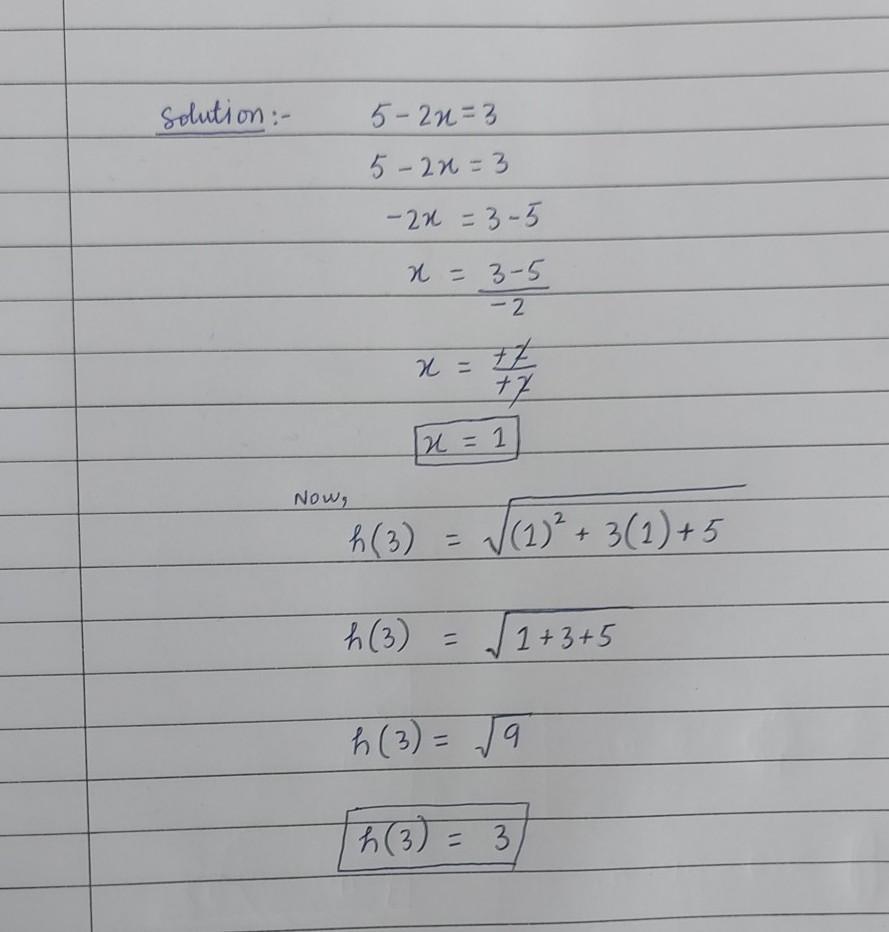 Solution:- 5 - 2x = 3
5 - 2x = 3
-2x = 3 - 5
x = 3-5 / -2
x = +2 / +2
x = 1
Now,
h(3) = √(1)² + 3(1) + 5
h(3) = √1+3+5
h(3) = √9
h(3) = 3